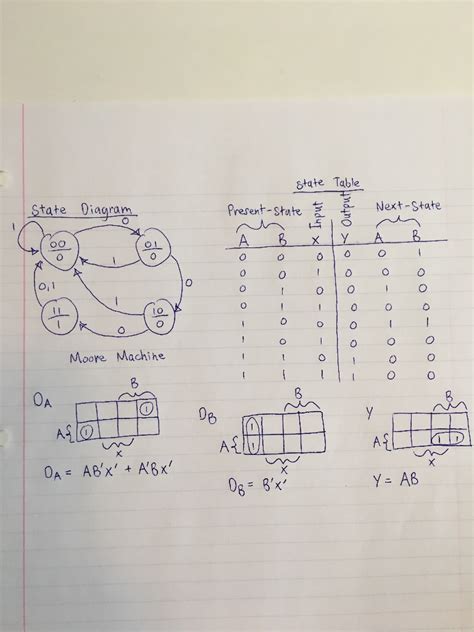 State Table
State Diagram
Present-State Input Output Next-State
A B X Y A B
0 0 0 0 0 1
0 0 1 0 0 0
0 1 0 0 1 0
0 1 1 0 0 0
1 0 0 0 1 1
1 0 1 0 0 0
1 1 0 1 0 0
1 1 1 1 0 0
1
0
00
0
01
0
1
0
0,1
1
11
1
10
0
0
Moore Machine
DA
B
1
A 1
X
DA = AB'X' + A'BX'
DB
B
1
A 1
X
DB = B'X'
Y
B
A 1 1
X
Y = AB